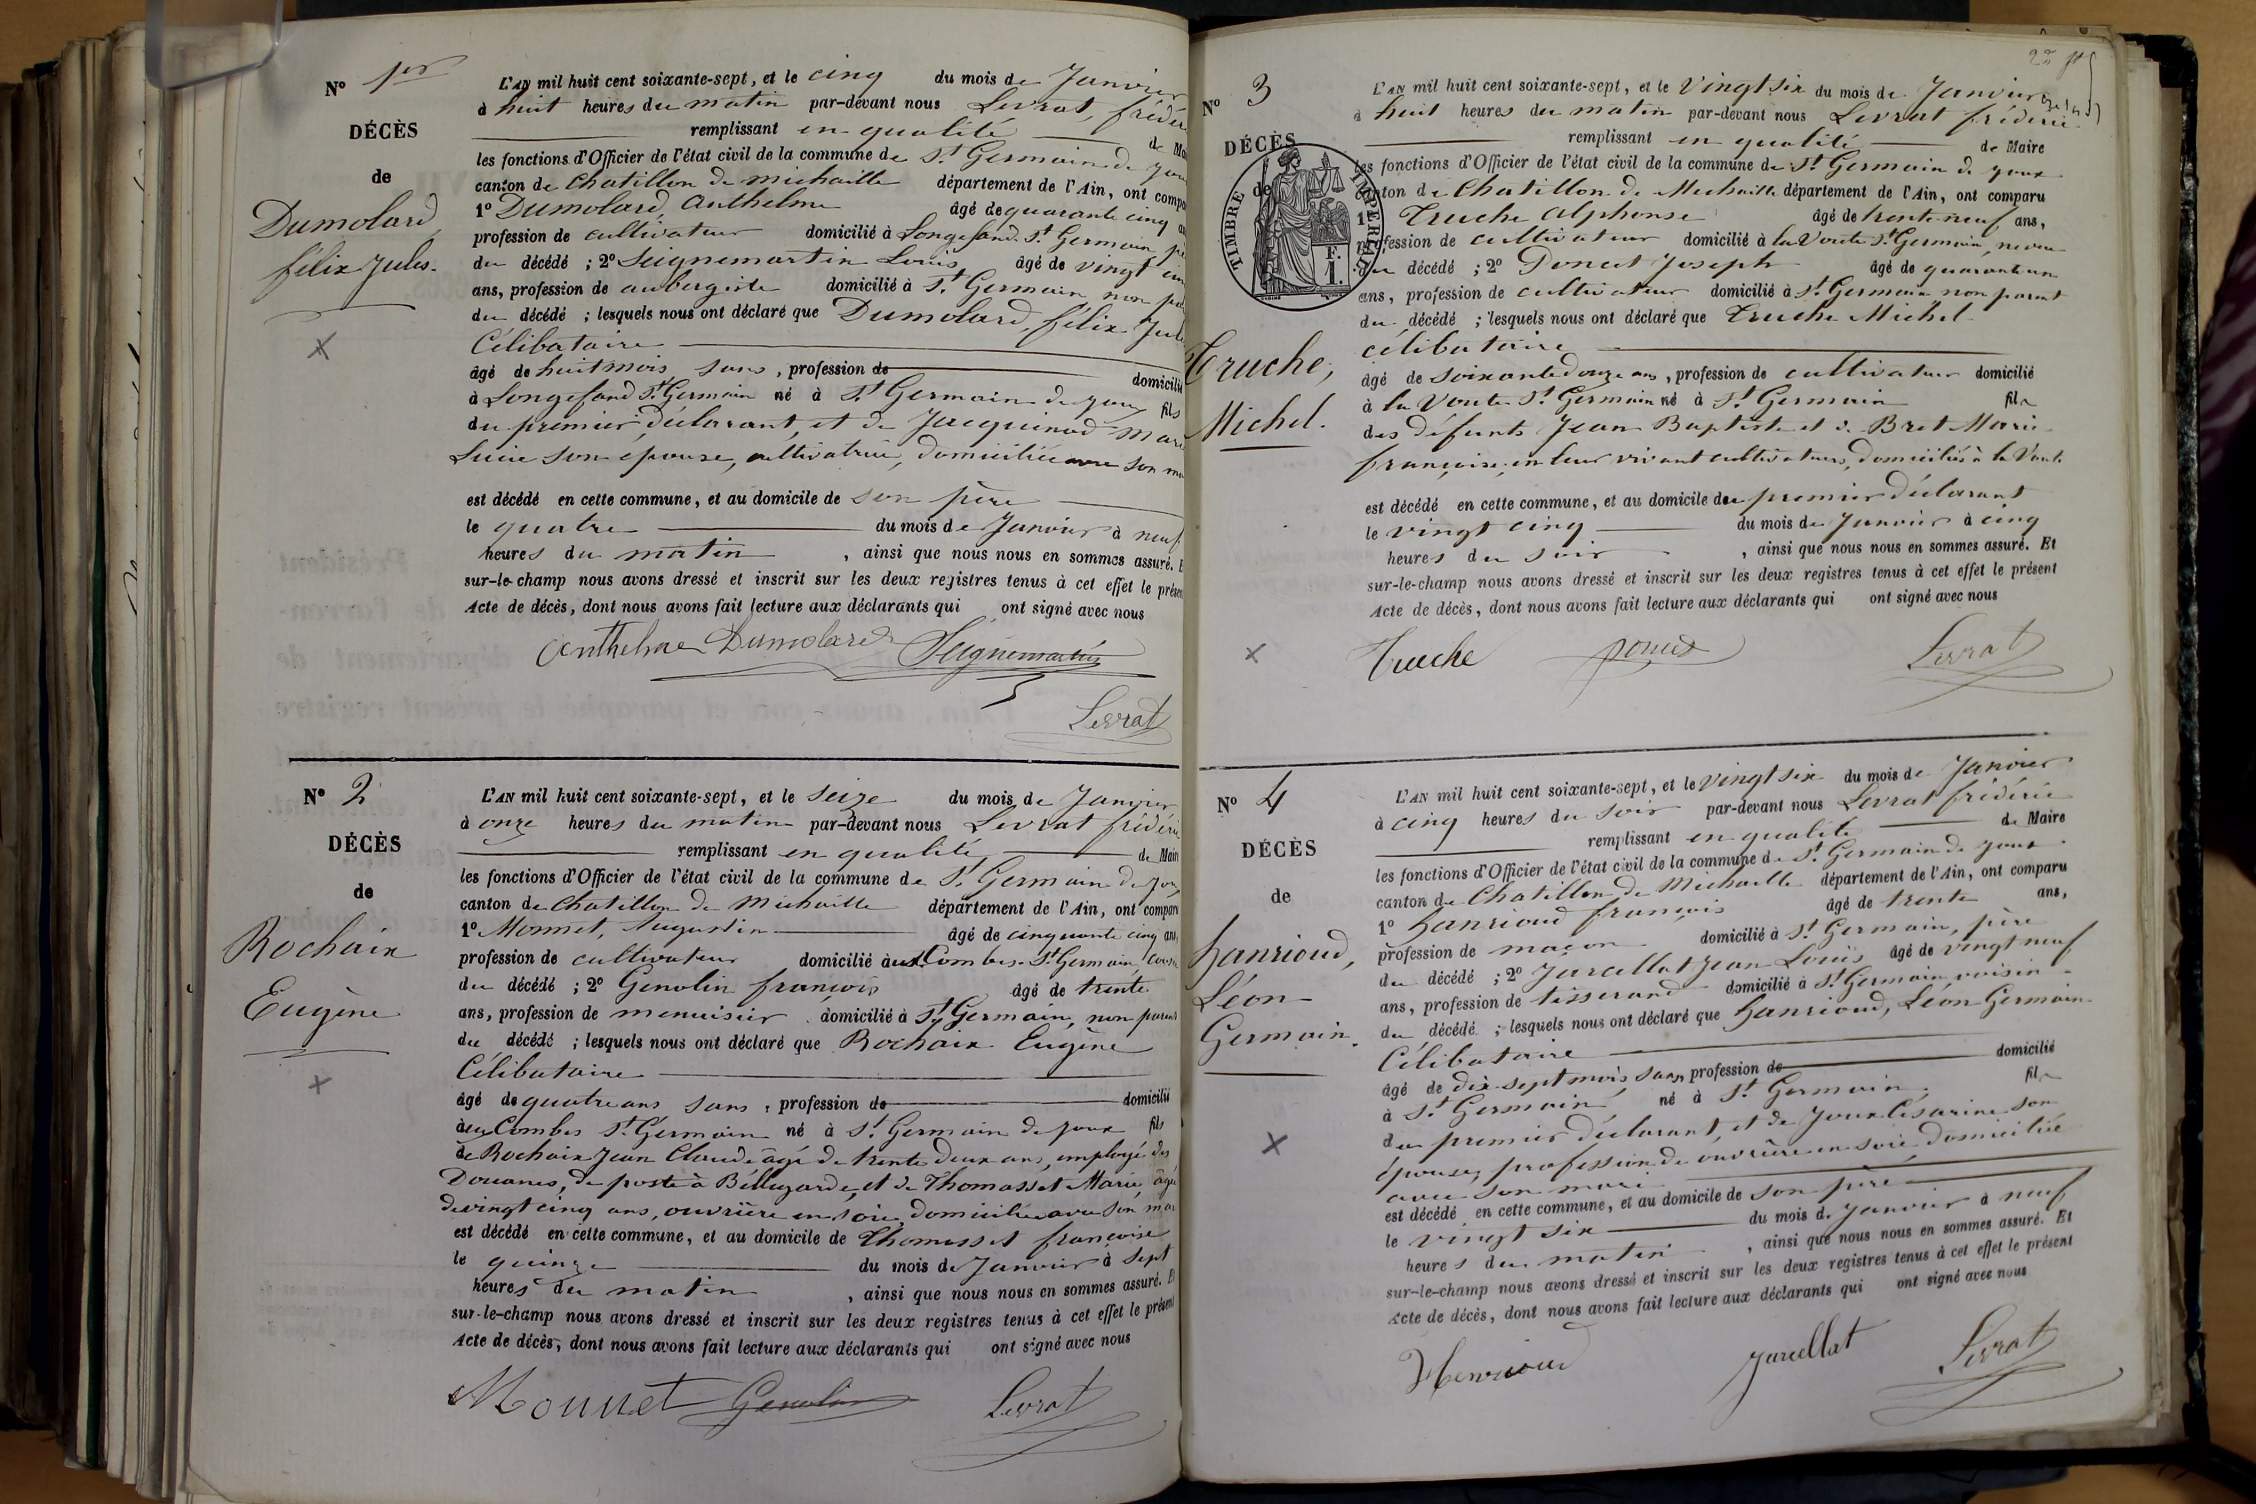 N° 1er
DÉCÈS
de
Dumolard,
félix Jules.
L'AN mil huit cent soixante-sept, et le cinq du mois de Janvier
à huit heures du matin par-devant nous Levrat, frédé
remplissant en qualité de Ma
les fonctions d'Officier de l'état civil de la commune de St Germain de Joux
canton de Chatillon de michaille département de l'Ain, ont compa
1° Dumolard, Anthelme âgé de quarante cinq a
profession de cultivateur domicilié à Longefand St Germain, pè
du décédé ; 2° Seignemartin Louis âgé de vingt cin
ans, profession de aubergiste domicilié à St Germain non pa
du décédé ; lesquels nous ont déclaré que Dumolard, félix Jule
Célibataire
âgé de huit mois sans, profession de domicilié
à Longefand St Germain né à St Germain de joux fils
du premier déclarant, et de Jacquinod Mari
Lucie son épouse, cultivatrice, domiciliée avec son ma
est décédé en cette commune, et au domicile de son père
le quatre du mois de Janvier à neuf
heures du matin, ainsi que nous nous en sommes assuré. E
sur-le-champ nous avons dressé et inscrit sur les deux registres tenus à cet effet le présen
Acte de décès, dont nous avons fait lecture aux déclarants qui ont signé avec nous
Anthelme Dumolard Seignemartin
Levrat
N° 2
DÉCÈS
de
Rochaix
Eugène
L'AN mil huit cent soixante-sept, et le seize du mois de Janvier
à onze heures du matin par-devant nous Levrat frédéric
remplissant en qualité de Mair
les fonctions d'Officier de l'état civil de la commune de St Germain de Joux
canton de Chatillon de Michaille département de l'Ain, ont comparu
1° Monnet, Augustin âgé de cinquante cinq ans,
profession de cultivateur domicilié aux Combes St Germain, cousin
du décédé ; 2° Genolin françois âgé de trente
ans, profession de menuisier domicilié à St Germain, non parent
du décédé ; lesquels nous ont déclaré que Rochaix Eugène
Célibataire
âgé de quatre ans sans, profession de domicilié
aux Combes St Germain né à St Germain de joux fils
de Rochaix Jean Claude âgé de trente deux ans, employé des
Douanes, de poste à Bellegarde, et de Thomasset Marie, âgée
de vingt cinq ans, ouvrière en soie, domiciliée avec son mari
est décédé en cette commune, et au domicile de Thomasset françoise
le quinze du mois de Janvier à sept
heures du matin, ainsi que nous nous en sommes assuré. E
sur-le-champ nous avons dressé et inscrit sur les deux registres tenus à cet effet le présent
Acte de décès, dont nous avons fait lecture aux déclarants qui ont signé avec nous
Monnet Genolin Levrat
N° 3
DÉCÈS
de
TIMBRE IMPÉRIAL
F.
1.
Truche,
Michel.
L'AN mil huit cent soixante-sept, et le vingt six du mois de Janvier
à huit heures du matin par-devant nous Levrat frédéric
remplissant en qualité de Maire
les fonctions d'Officier de l'état civil de la commune de St Germain de joux
canton de Chatillon de Michaille département de l'Ain, ont comparu
1° Truche Alphonse âgé de trente neuf ans,
profession de cultivateur domicilié à la Voute St Germain, neveu
du décédé ; 2° Poncet Joseph âgé de quarante un
ans, profession de cultivateur domicilié à St Germain non parent
du décédé ; lesquels nous ont déclaré que Truche Michel
célibataire
âgé de soixante douze ans, profession de cultivateur domicilié
à la Voute St Germain né à St Germain fils
des défunts Jean Baptiste et de Bret Marie
françoise, en leur vivant cultivateurs, domiciliés à la Voute
est décédé en cette commune, et au domicile du premier déclarant
le vingt cinq du mois de Janvier à cinq
heures du soir, ainsi que nous nous en sommes assuré. Et
sur-le-champ nous avons dressé et inscrit sur les deux registres tenus à cet effet le présent
Acte de décès, dont nous avons fait lecture aux déclarants qui ont signé avec nous
Truche Poncet Levrat
N° 4
DÉCÈS
de
hanrioud,
Léon
Germain.
L'AN mil huit cent soixante-sept, et le vingt six du mois de Janvier
à cinq heures du soir par-devant nous Levrat frédéric
remplissant en qualité de Maire
les fonctions d'Officier de l'état civil de la commune de St Germain de joux
canton de Chatillon de Michaille département de l'Ain, ont comparu
1° hanrioud françois âgé de trente ans,
profession de maçon domicilié à St Germain, père
du décédé ; 2° Jarcellat Jean Louis âgé de vingt neuf
ans, profession de tisserand domicilié à St Germain, voisin
du décédé ; lesquels nous ont déclaré que hanrioud, Léon Germain
Célibataire
âgé de dix sept mois sans profession de domicilié
à St Germain né à St Germain, fils
du premier déclarant, et de Joux Césarine son
épouse, profession de ouvrière en soie, domiciliée
avec son mari
est décédé en cette commune, et au domicile de son père
le vingt six du mois de Janvier à neuf
heures du matin, ainsi que nous nous en sommes assuré. Et
sur-le-champ nous avons dressé et inscrit sur les deux registres tenus à cet effet le présent
Acte de décès, dont nous avons fait lecture aux déclarants qui ont signé avec nous
Henrioud Jarcellat Levrat